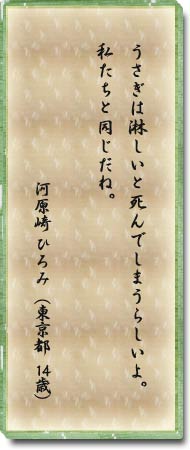 うさぎは淋しいと死んでしまうらしいよ。
私たちと同じだね。
河原崎 ひろみ （東京都 14歳）